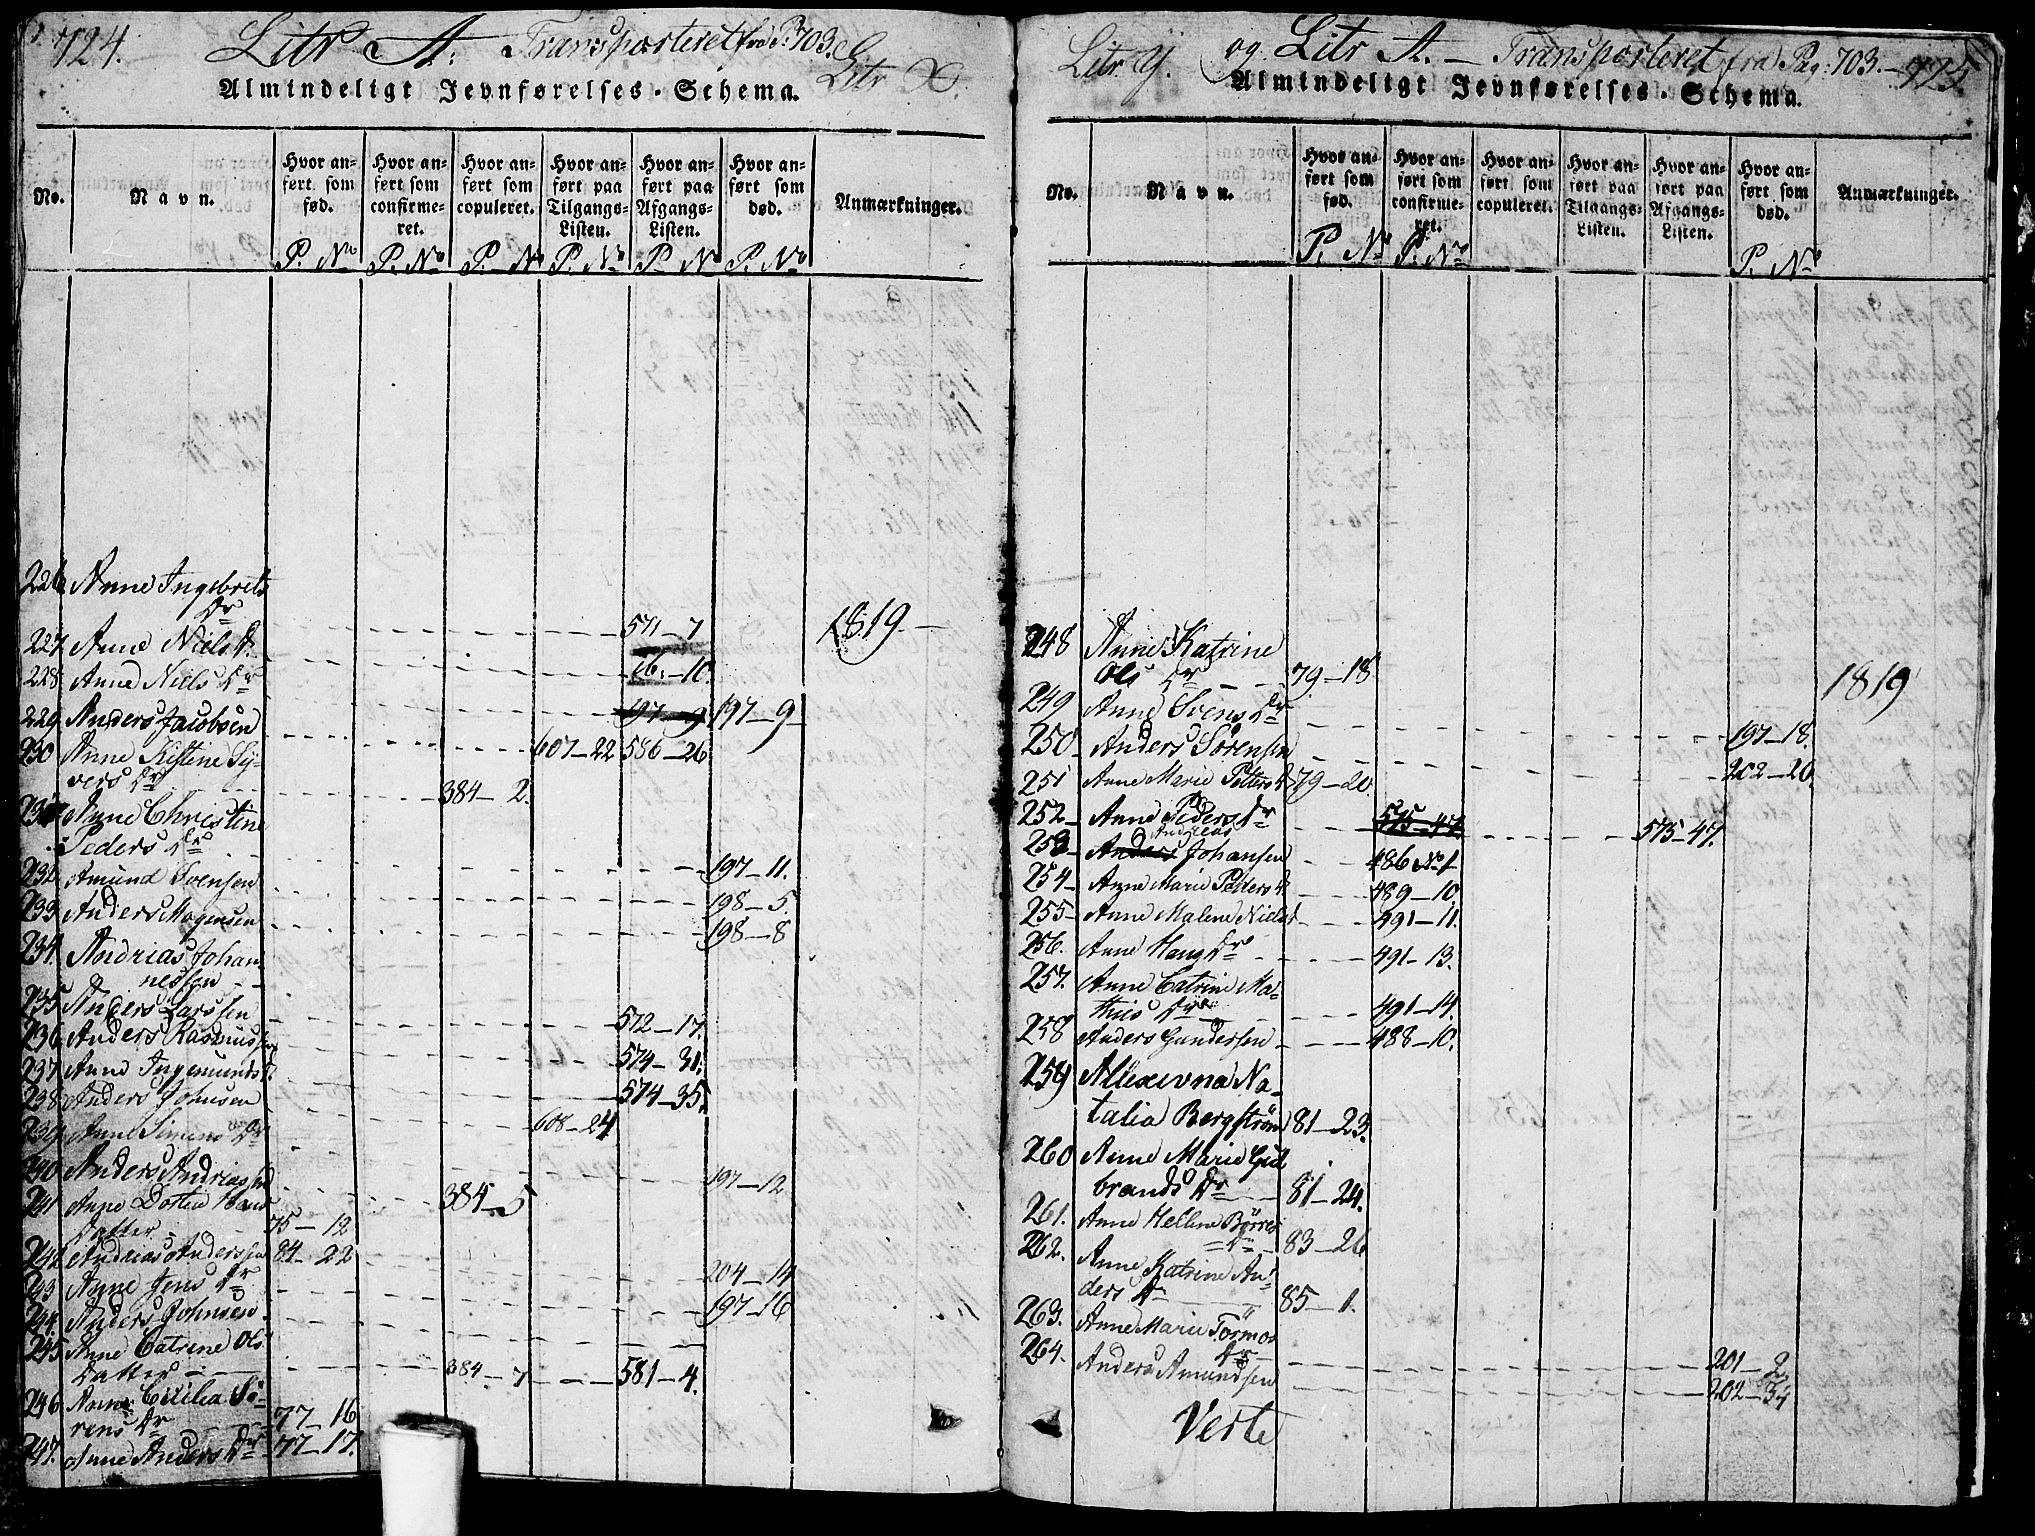 724. Litr A. Transporteret fra P. 703. Litr X.
Almindeligt Jevnførelses-Schema.
No. Navn. Hvor anført som fød. Hvor anført som confirmeret. Hvor anført som copuleret. Hvor anført paa Tilgangs-Listen. Hvor anført paa Afgangs-Listen. Hvor anført som død. Anmærkninger.
P. No P. No P. No P. No P. No P. No
226 Anne Ingebrets
Dr 571-7 1819.
227. Anne Niels Dr. 10.
228. Anne Niels Dr 197-9 197-9
229. Anders Jacobsen 607-22 586-26
230 Anne Kistine Sy-
vers Dr 384-2.
231 Anne Christine
Peders Dr 197-11.
232 Amund Svensen 198-5.
233 Anders Mogensen 198-8
234. Andrias Johan-
nessen
235 Anders Larssen 572-17.
236 Anders Rasmussen 574-31.
237 Anne Ingemunds Dr. 574-35.
238 Anders Johnsen 608-24
239 Anne Simens Dr 197-12
240 Anders Andriassen 384-5
241 Anne Dortea Hans
Datter 75-12
242 Andrias Anderssen 84-22
243 Anne Jens Dr 204-14
244. Anders Johnsen 197-16
245 Anne Catrine Ols
Datter 384-7 581-4.
246 Anne Cecilia Sö-
rens Dr 77-16
247. Anne Anders Dr 77-17.
Litr Y. og Litr A. - Transporteret fra Pag: 703 - 725.
Almindeligt Jevnførelses-Schema.
No. Navn. Hvor anført som fød. Hvor anført som confirmeret. Hvor anført som copuleret. Hvor anført paa Tilgangs-Listen. Hvor anført paa Afgangs-Listen. Hvor anført som død. Anmærkninger.
P. No P. No P. No
248 Anne Katrine
Ols Dr 79-18. 1819
249 Anne Svens Dr 197-18.
250 Anders Sörensen 202-20.
251 Anne Marie Petters Dr 79-20.
252 Anne Peders Dr 575-47 575-47.
253 Anders Andreas Johansen 486 No 1
254 Anne Marie Petters Dr 489-10.
255 Anne Malene Niels Dr 491-11.
256. Anne Hans Dr 491-13.
257. Anne Catrine Ma-
thies Dr 491-14.
258 Anders Gundersen 488-10.
259 Allexevna Na-
talia Bergström 81-23.
260 Anne Marie Gul
brands Dr 81-24.
261. Anne Hellene Börres
Dr 83-26
262. Anne Katrine An-
ders Dr 85-1.
263. Anne Marie Törmos
Dr 201-2
264. Anders Amundsen 202-34
Verte